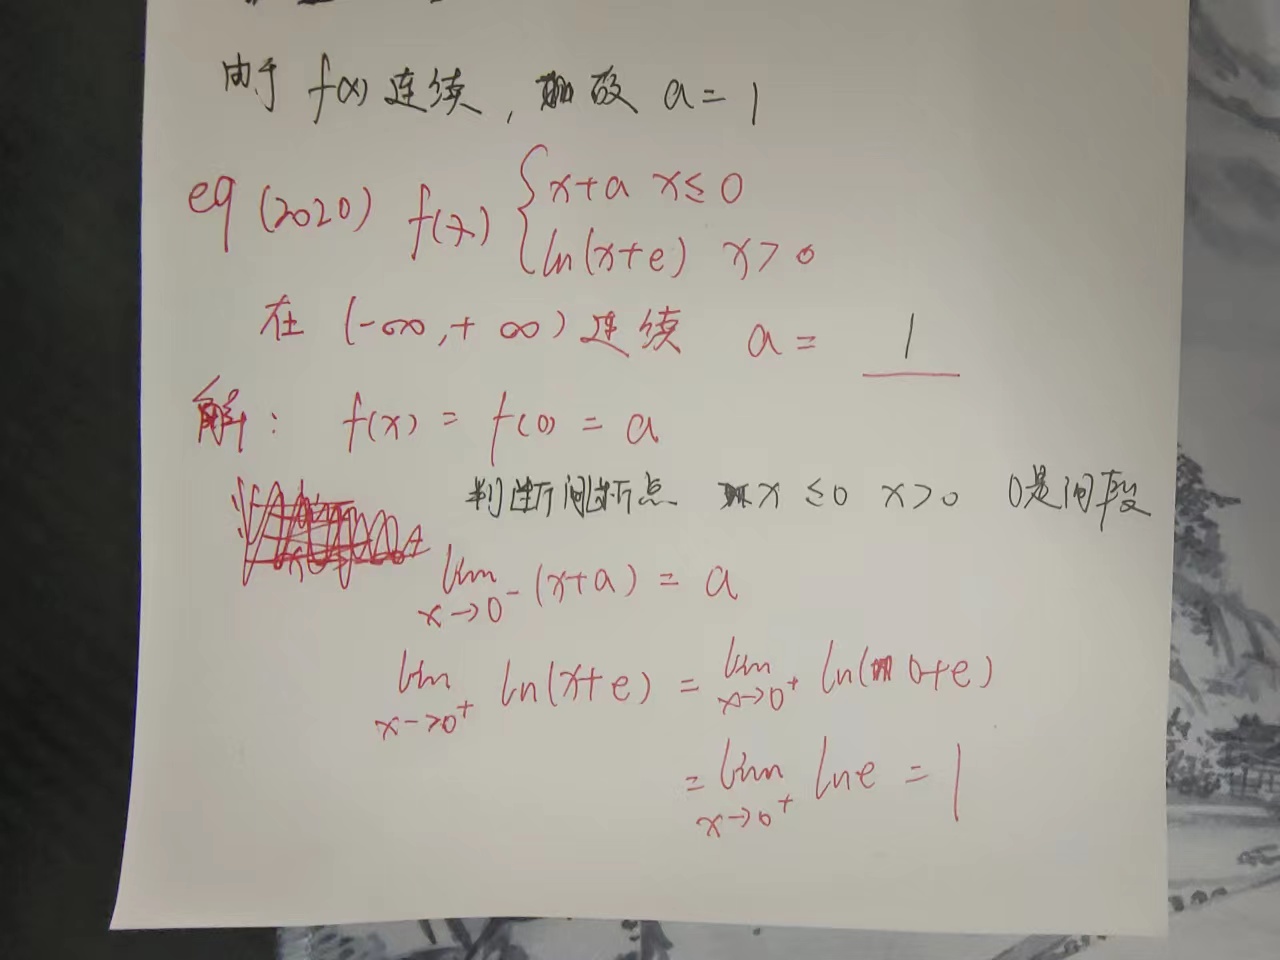 由于 f(x) 连续, 故 a = 1
eg (2020) f(x) { x+a x≤0
ln(x+e) x>0
在 (-∞,+∞) 连续 a = 1
解: f(x) = f(0) = a
判断间断点 x ≤0 x>0 0是间段
lim x→0⁻ (x+a) = a
lim x→0⁺ ln(x+e) = lim x→0⁺ ln(0+e)
= lim x→0⁺ lne = 1